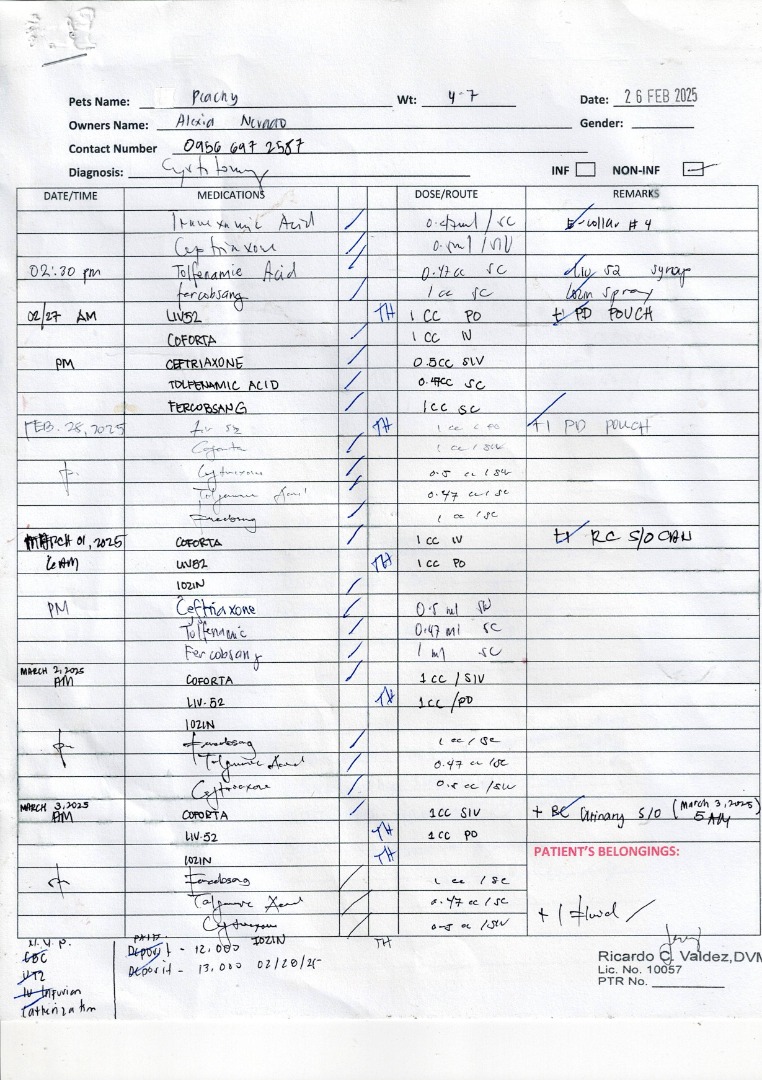 Pets Name: Peachy Wt: 4-7 Date: 26 FEB 2025
Owners Name: Alexia Gender:
Contact Number 0956 697 2587
Diagnosis: INF NON-INF
DATE/TIME MEDICATIONS DOSE/ROUTE REMARKS
Tranexamic Acid 0.47ml / SC E-collar # 4
Ceftriaxone 0.5ml / SIV
02:30 pm Tolfenamic Acid 0.47 cc SC Liv 52 syrup
fercobsang 1 cc SC Iozin spray
02/27 AM LIV52 TH 1 CC PO +1 PD POUCH
COFORTA 1 CC IV
PM CEFTRIAXONE 0.5CC SIV
TOLFENAMIC ACID 0.47CC SC
FERCOBSANG 1CC SC
FEB. 28, 2025 Liv 52 TH 1 cc PO +1 PD POUCH
Coforta 1 cc / SIV
Ceftriaxone 0.5 cc / SIV
0.47 cc / SC
1 cc / SC
MARCH 01, 2025 COFORTA 1 CC IV +1 RC S/O CAN
6AM LIV52 TH 1 CC PO
IOZIN
PM Ceftriaxone 0.5 ml SIV
Tolfenamic 0.47 ml SC
Fercobsang 1 ml SC
MARCH 2, 2025
AM COFORTA 1 CC / SIV
LIV-52 TH 1CC / PO
IOZIN
1 cc / SC
0.47 cc / SC
Ceftriaxone 0.5 cc / SIV
MARCH 3, 2025
AM COFORTA 1CC SIV + RC Urinary S/O (March 3, 2025) 5 AM
LIV-52 TH 1 CC PO
IOZIN TH PATIENT'S BELONGINGS:
1 cc / SC
0.47 cc / SC + 1 fluid /
0.5 cc / SIV
IOZIN TH
CBC
IV Infusion
PAID
Deposit - 12,000
Deposit - 13,000 02/28/25
Ricardo C. Valdez, DVM
Lic. No. 10057
PTR No.